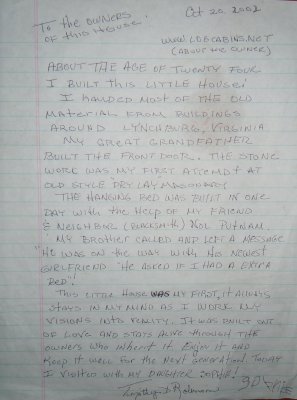 To the OWNERS
of this House!
Oct 20, 2002
WWW.LOGCABINS.NET
(ABOUT the OWNER)
ABOUT THE AGE OF TWENTY FOUR
I BUILT THIS LITTLE HOUSE!
I HANDED MOST OF THE OLD
MATERIAL FROM BUILDINGS
AROUND LYNCHBURG, VIRGINIA
MY GREAT GRANDFATHER
BUILT THE FRONT DOOR. THE STONE
WORK WAS MY FIRST ATTEMPT AT
OLD STYLE DRY LAY MASONARY
THE HANGING BED WAS BUILT IN ONE
DAY with the HELP OF MY FRIEND
& NEIGHBOR (BLACKSMITH) NOL PUTNAM.
MY BROTHER CALLED AND LEFT A MESSAGE
"HE WAS ON THE WAY WITH HIS NEWEST
GIRLFRIEND "HE ASKED IF I HAD A EXTRA
BED"!
THIS LITTLE HOUSE WAS MY FIRST, IT ALWAYS
STAYS IN MY MIND AS I WORK MY
VISIONS INTO REALITY. IT WAS BUILT OUT
OF LOVE AND STAYS ALIVE THROUGH THE
OWNERS WHO INHERIT IT. ENJOY IT AND
KEEP IT WELL FOR THE NEXT GENERATION! TODAY
I VISITED WITH MY DAUGHTER SOPHIE!
Timothy